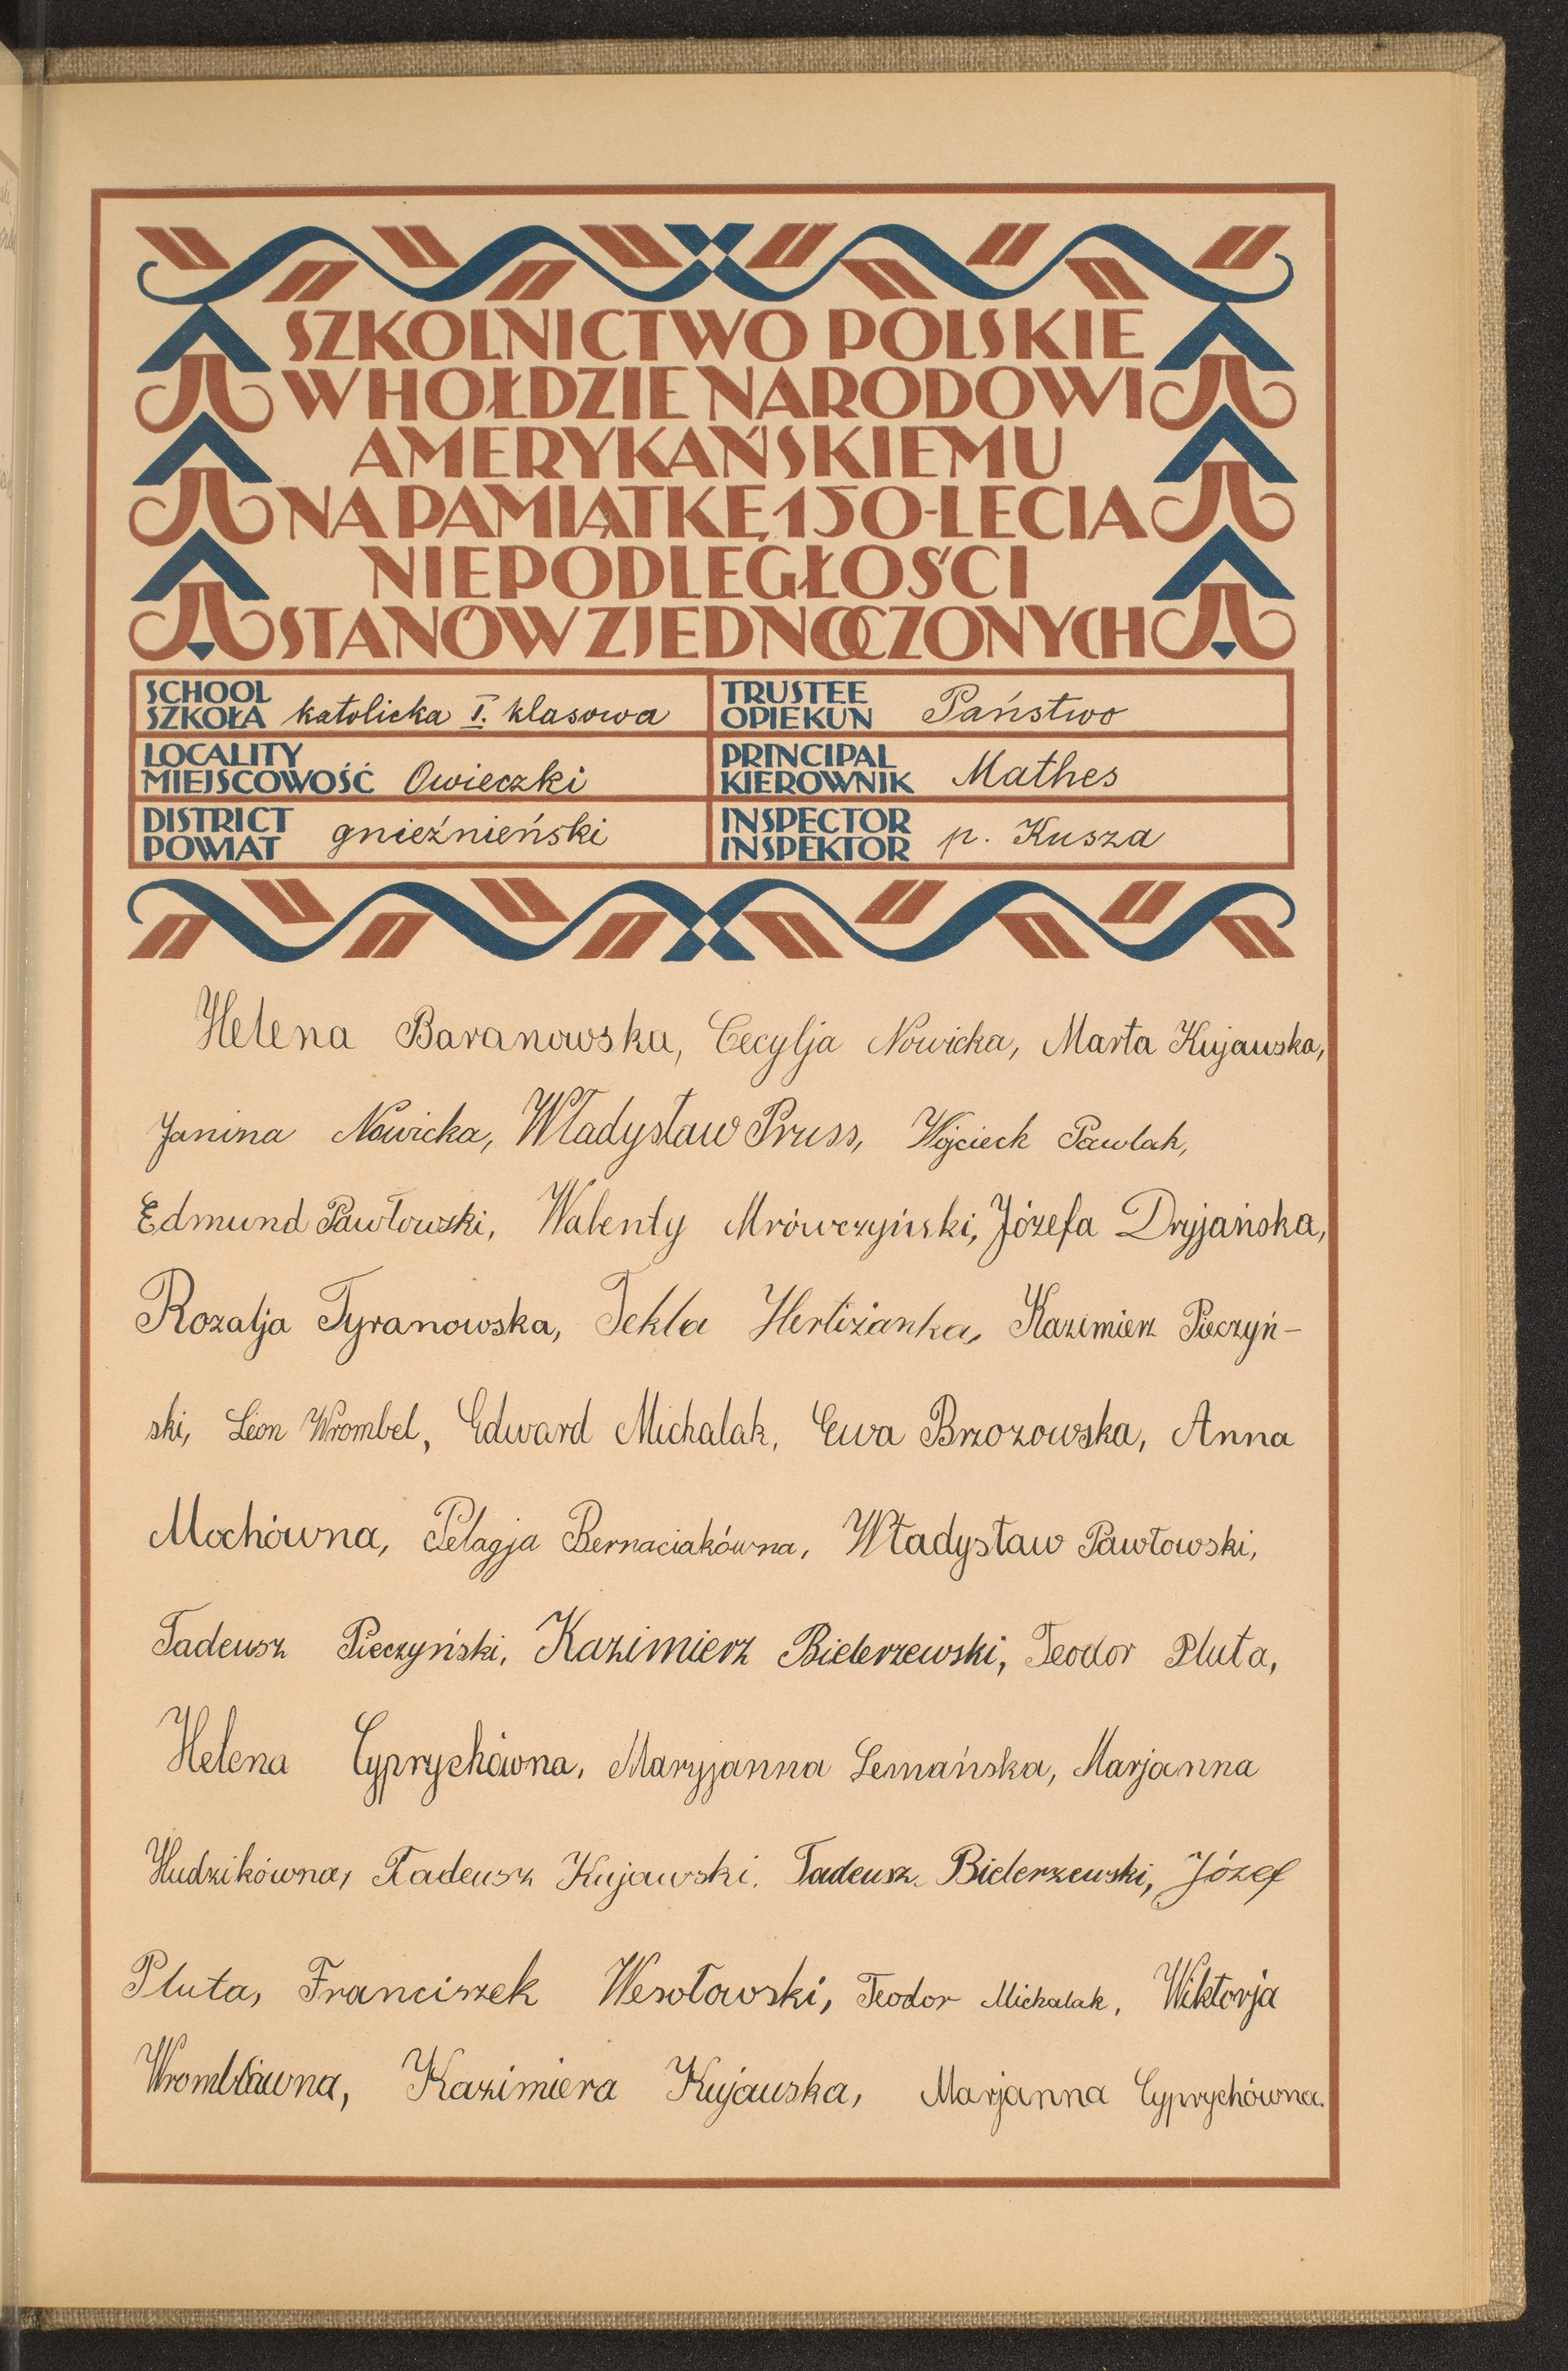 SZKOLNICTWO POLSKIE
W HOŁDZIE NARODOWI
AMERYKAŃSKIEMU
NA PAMIĄTKĘ 150-LECIA
NIEPODLEGŁOŚCI
STANÓW ZJEDNOCZONYCH
SCHOOL
SZKOŁA katolicka I. klasowa
TRUSTEE
OPIEKUN Państwo
LOCALITY
MIEJSCOWOŚĆ Owieczki
PRINCIPAL
KIEROWNIK Mathes
DISTRICT
POWIAT gnieźnieński
INSPECTOR
INSPEKTOR p. Kusza
Helena Baranowska, Cecylja Nowicka, Marta Kujawska,
Janina Nowicka, Władysław Pruss, Wojciech Pawlak,
Edmund Pawłowski, Walenty Mrówczyński, Józefa Dryjańska,
Rozalja Tyranowska, Tekla Hertiżanka, Kazimierz Pieczyń-
ski, Leon Wrombel, Edward Michalak, Ewa Brzozowska, Anna
Mochówna, Pelagja Bernaciakówna, Władysław Pawłowski,
Tadeusz Pieczyński, Kazimierz Bielerzewski, Teodor Pluta,
Helena Cyprychówna, Maryjanna Lemańska, Marjanna
Hudzikówna, Tadeusz Kujawski. Tadeusz Bielerzewski, Józef
Pluta, Franciszek Wesołowski, Teodor Michalak, Wiktorja
Wromblówna, Kazimiera Kujawska, Marjanna Cyprychówna.